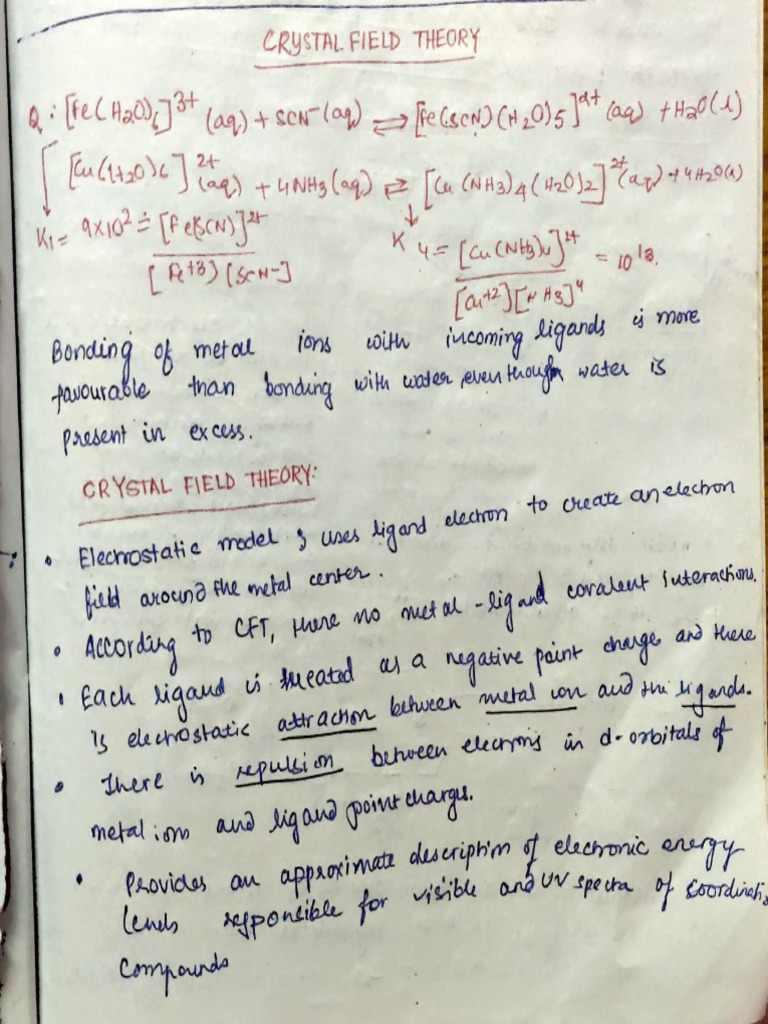 CRYSTAL FIELD THEORY
Q: [Fe(H2O)6]3+ (aq) + SCN-(aq) ⇌ [Fe(SCN)(H2O)5]2+ (aq) + H2O(l)
[Cu(H2O)6]2+ (aq) + 4NH3(aq) ⇌ [Cu(NH3)4(H2O)2]2+(aq) + 4H2O(l)
K1 = 9x10² = [Fe(SCN)]2+ / [Fe+3] [SCN-]
K4 = [Cu(NH3)4]2+ / [Cu+2][NH3]4 = 10^13.
Bonding of metal ions with incoming ligands is more
favourable than bonding with water, even though water is
present in excess.
CRYSTAL FIELD THEORY:
• Electrostatic model ; uses ligand electron to create an electron
field around the metal center.
• According to CFT, there no metal-ligand covalent interactions.
• Each ligand is treated as a negative point charge and there
is electrostatic attraction between metal ion and the ligands.
• There is repulsion between electrons in d-orbitals of
metal ions and ligand point charges.
• Provides an approximate description of electronic energy
levels responsible for visible and UV spectra of coordinati
compounds